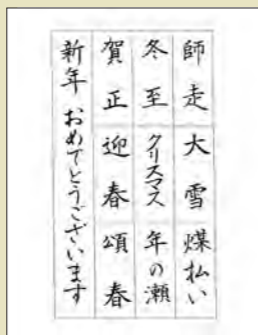 師走 大雪 煤払い
冬至 クリスマス 年の瀬
賀正 迎春 頌春
新年 おめでとうございます